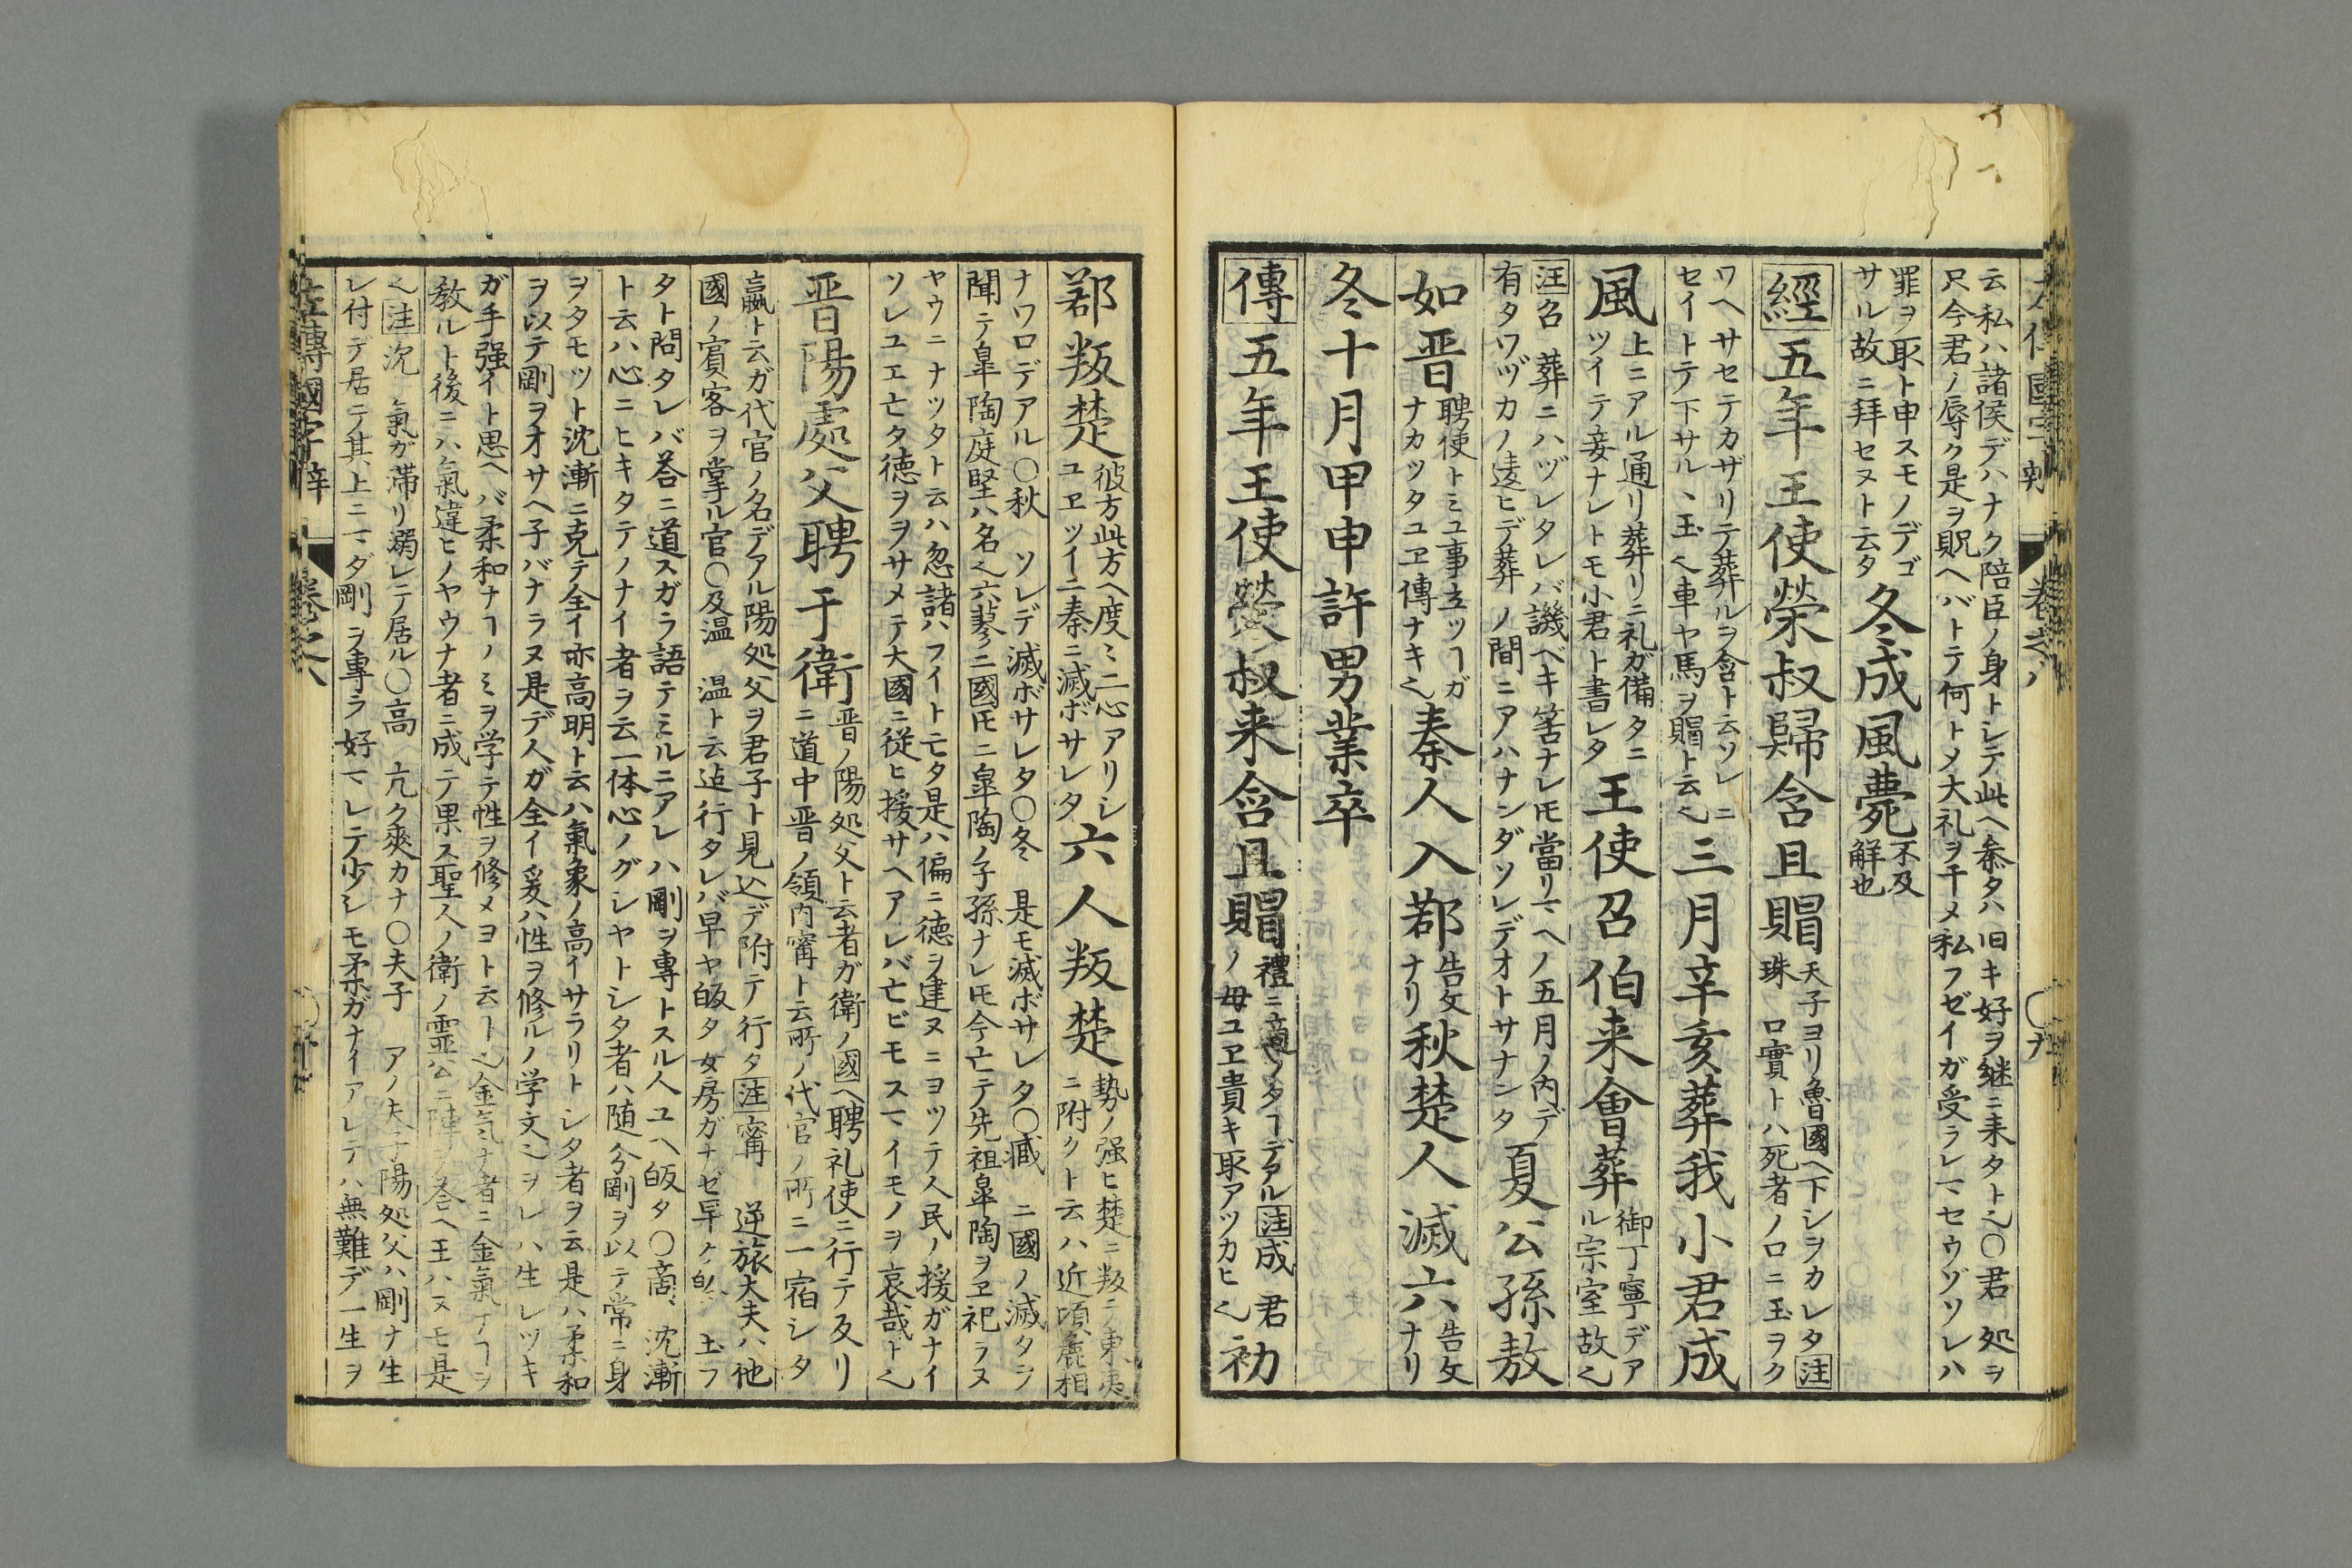 云私ハ諸侯デハナク陪臣ノ身トレテ此ヘ来タハ旧キ好ヲ継ニ来タト也〇君 処ヲ
尺今君ノ辱ク是ヲ貺ヘバトテ何トメ大礼ヲ干メ私フゼイガ受ラレマセウゾソレハ
罪ヲ取ト申スモノデゴ
サル故ニ拝セヌト云タ
冬成風薨
不及
解也
經五年王使榮叔歸含且賵
天子ヨリ魯國ヘ下シヲカレタ注
珠 口實トハ死者ノ口ニ玉ヲク
ワヘサセテカザリテ葬ルヲ含ト云ソレニ
セイトテ下サル、玉也車ヤ馬ヲ賵ト云也
三月辛亥葬我小君成
風
上ニアル通リ葬リニ礼ガ備タニ
ツイテ妾ナレトモ小君ト書レタ
王使召伯来會葬
御丁寧デア
ル宗室故也
注召 葬ニハヅレタレバ譏ベキ筈ナレ𪜈當リマヘノ五月ノ内デ
有タワヅカノ逺ヒデ葬ノ間ニアハナンダソレデオトサナンタ
夏公孫敖
如晋
聘使トミユ事立ヅヿガ
ナカツタユヱ傳ナキ也
秦人入鄀
告攵
ナリ
秋楚人滅六
告攵
ナリ
冬十月甲申許男業卒
傳五年王使榮叔来含且賵
禮ニ適ノタヿデアル注成 君
ノ母ユヱ貴キ取アツカヒ也
初
鄀叛楚
彼方此方ヘ度ミ二心アリシ
ユヱツイニ秦ニ滅ボサレタ
六人叛楚
勢ノ强ヒ楚ニ叛テ東夷
ニ附クト云ハ近頃麁相
ナワロデアル〇秋 ソレデ滅ボサレタ〇冬 是モ滅ボサレタ〇臧 ニ國ノ滅タヲ
聞テ皐陶庭堅ハ名也六蓼二國𪜈ニ皐陶ノ子孫ナレ𪜈今亡テ先祖皐陶ヲヱ祀ラヌ
ヤウニナツタト云ハ忽諸ハフイト亡タ是ハ偏ニ徳ヲ建ヌニヨツテ人民ノ援ガナイ
ソレユエ亡タ徳ヲヲサメテ大國ニ従ヒ援サヘアレバ亡ビモスマイモノヲ哀哉ト也
晋陽處父聘于衛
晋ノ陽処父ト云者ガ衛ノ國ヘ聘礼使ニ行テ反リ
ニ道中晋ノ領内甯ト云所ノ代官ノ所ニ一宿シタ
嬴ト云ガ代官ノ名デアル陽処父ヲ君子ト見込デ附テ行タ注甯 逆旅大夫ハ他
國ノ賓客ヲ掌ル官〇及温 温ト云迠行タレバ早ヤ皈タ女房ガナゼ早ク
タト問タレバ荅ニ道スガラ語テミルニアレハ剛ヲ專トスル人ユヘ皈タ〇商 沈漸
ト云ハ心ニヒキタテノナイ者ヲ云一体心ノグシヤトシタ者ハ随分剛ヲ以テ常ニ身
ヲタモツト沈漸ニ克テ全イ亦高明ト云ハ氣象ノ高イサラリトシタ者ヲ云是ハ柔和
ヲ以テ剛ヲオサヘ子バナラヌ是デ人ガ全イ爰ハ性ヲ修ルノ学文也ヲレハ生レツキ
ガ手强イト思ヘバ柔和ナヿノミヲ学テ性ヲ修メヨト云ヿ也金氣ナ者ニ金氣ナヿヲ
教ルト後ニハ氣違ヒノヤウナ者ニ成テ果ス聖人ノ衛ノ靈公ニ陣ヲ荅ヘ玉ハヌモ是
也注沉 氣ガ滞リ溺レテ居ル〇高 亢ク爽カナ〇夫子 アノ夫子陽処父ハ剛ナ生
レ付デ居テ其上ニマダ剛ヲ專ラ好マレテ少シモ柔ガナイアレテハ無難デ一生ヲ
左傳國字辨 巻之八